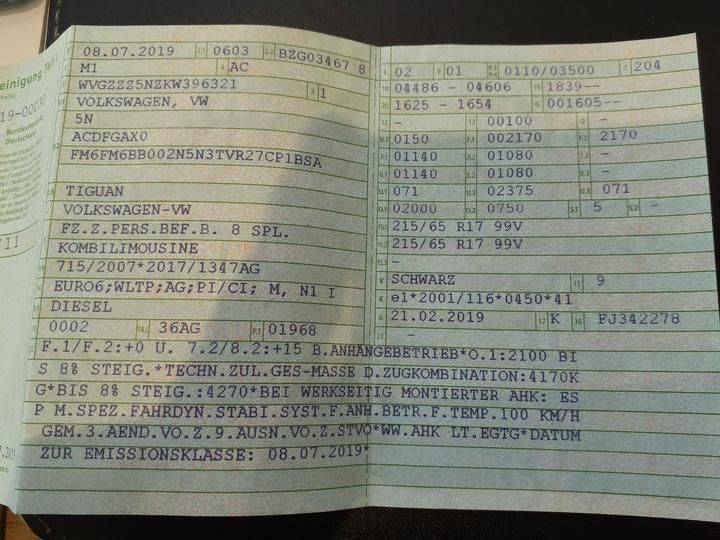 einigung Teil I
19-0003
Bundesre
Deutschland
/11
08.07.2019 2.1 0603 2.2 BZG03467 8
M1 4 AC
WVGZZZ5NZKW396321 3 1
VOLKSWAGEN, VW
5N
ACDFGAX0
FM6FM6BB002N5N3TVR27CP1BSA
TIGUAN
VOLKSWAGEN-VW
FZ.Z.PERS.BEF.B. 8 SPL.
KOMBILIMOUSINE
715/2007*2017/1347AG
EURO6;WLTP;AG;PI/CI; M, N1 I
DIESEL
0002 14.1 36AG P.1 01968
L 02 9 01 P.2 P.4 0110/03500 T 204
18 04486 - 04606 19 1839--
20 1625 - 1654 G 001605--
12 - 13 00100 Q -
V.7 0150 F.1 002170 F.2 2170
7.1 01140 7.2 01080 7.3 -
8.1 01140 8.2 01080 8.3 -
U.1 071 U.2 02375 U.3 071
O.1 02000 O.2 0750 S.1 5 S.2 -
15.1 215/65 R17 99V
15.2 215/65 R17 99V
15.3 -
R SCHWARZ 11 9
K e1*2001/116*0450*41
6 21.02.2019 17 K 16 FJ342278
21 -
F.1/F.2:+0 U. 7.2/8.2:+15 B.ANHÄNGEBETRIEB*O.1:2100 BI
S 8% STEIG.*TECHN.ZUL.GES-MASSE D.ZUGKOMBINATION:4170K
G*BIS 8% STEIG.:4270*BEI WERKSEITIG MONTIERTER AHK: ES
P M.SPEZ.FAHRDYN.STABI.SYST.F.ANH.BETR.F.TEMP.100 KM/H
GEM.3.AEND.VO.Z.9.AUSN.VO.Z.STVO*WW.AHK LT.EGTG*DATUM
ZUR EMISSIONSKLASSE: 08.07.2019*